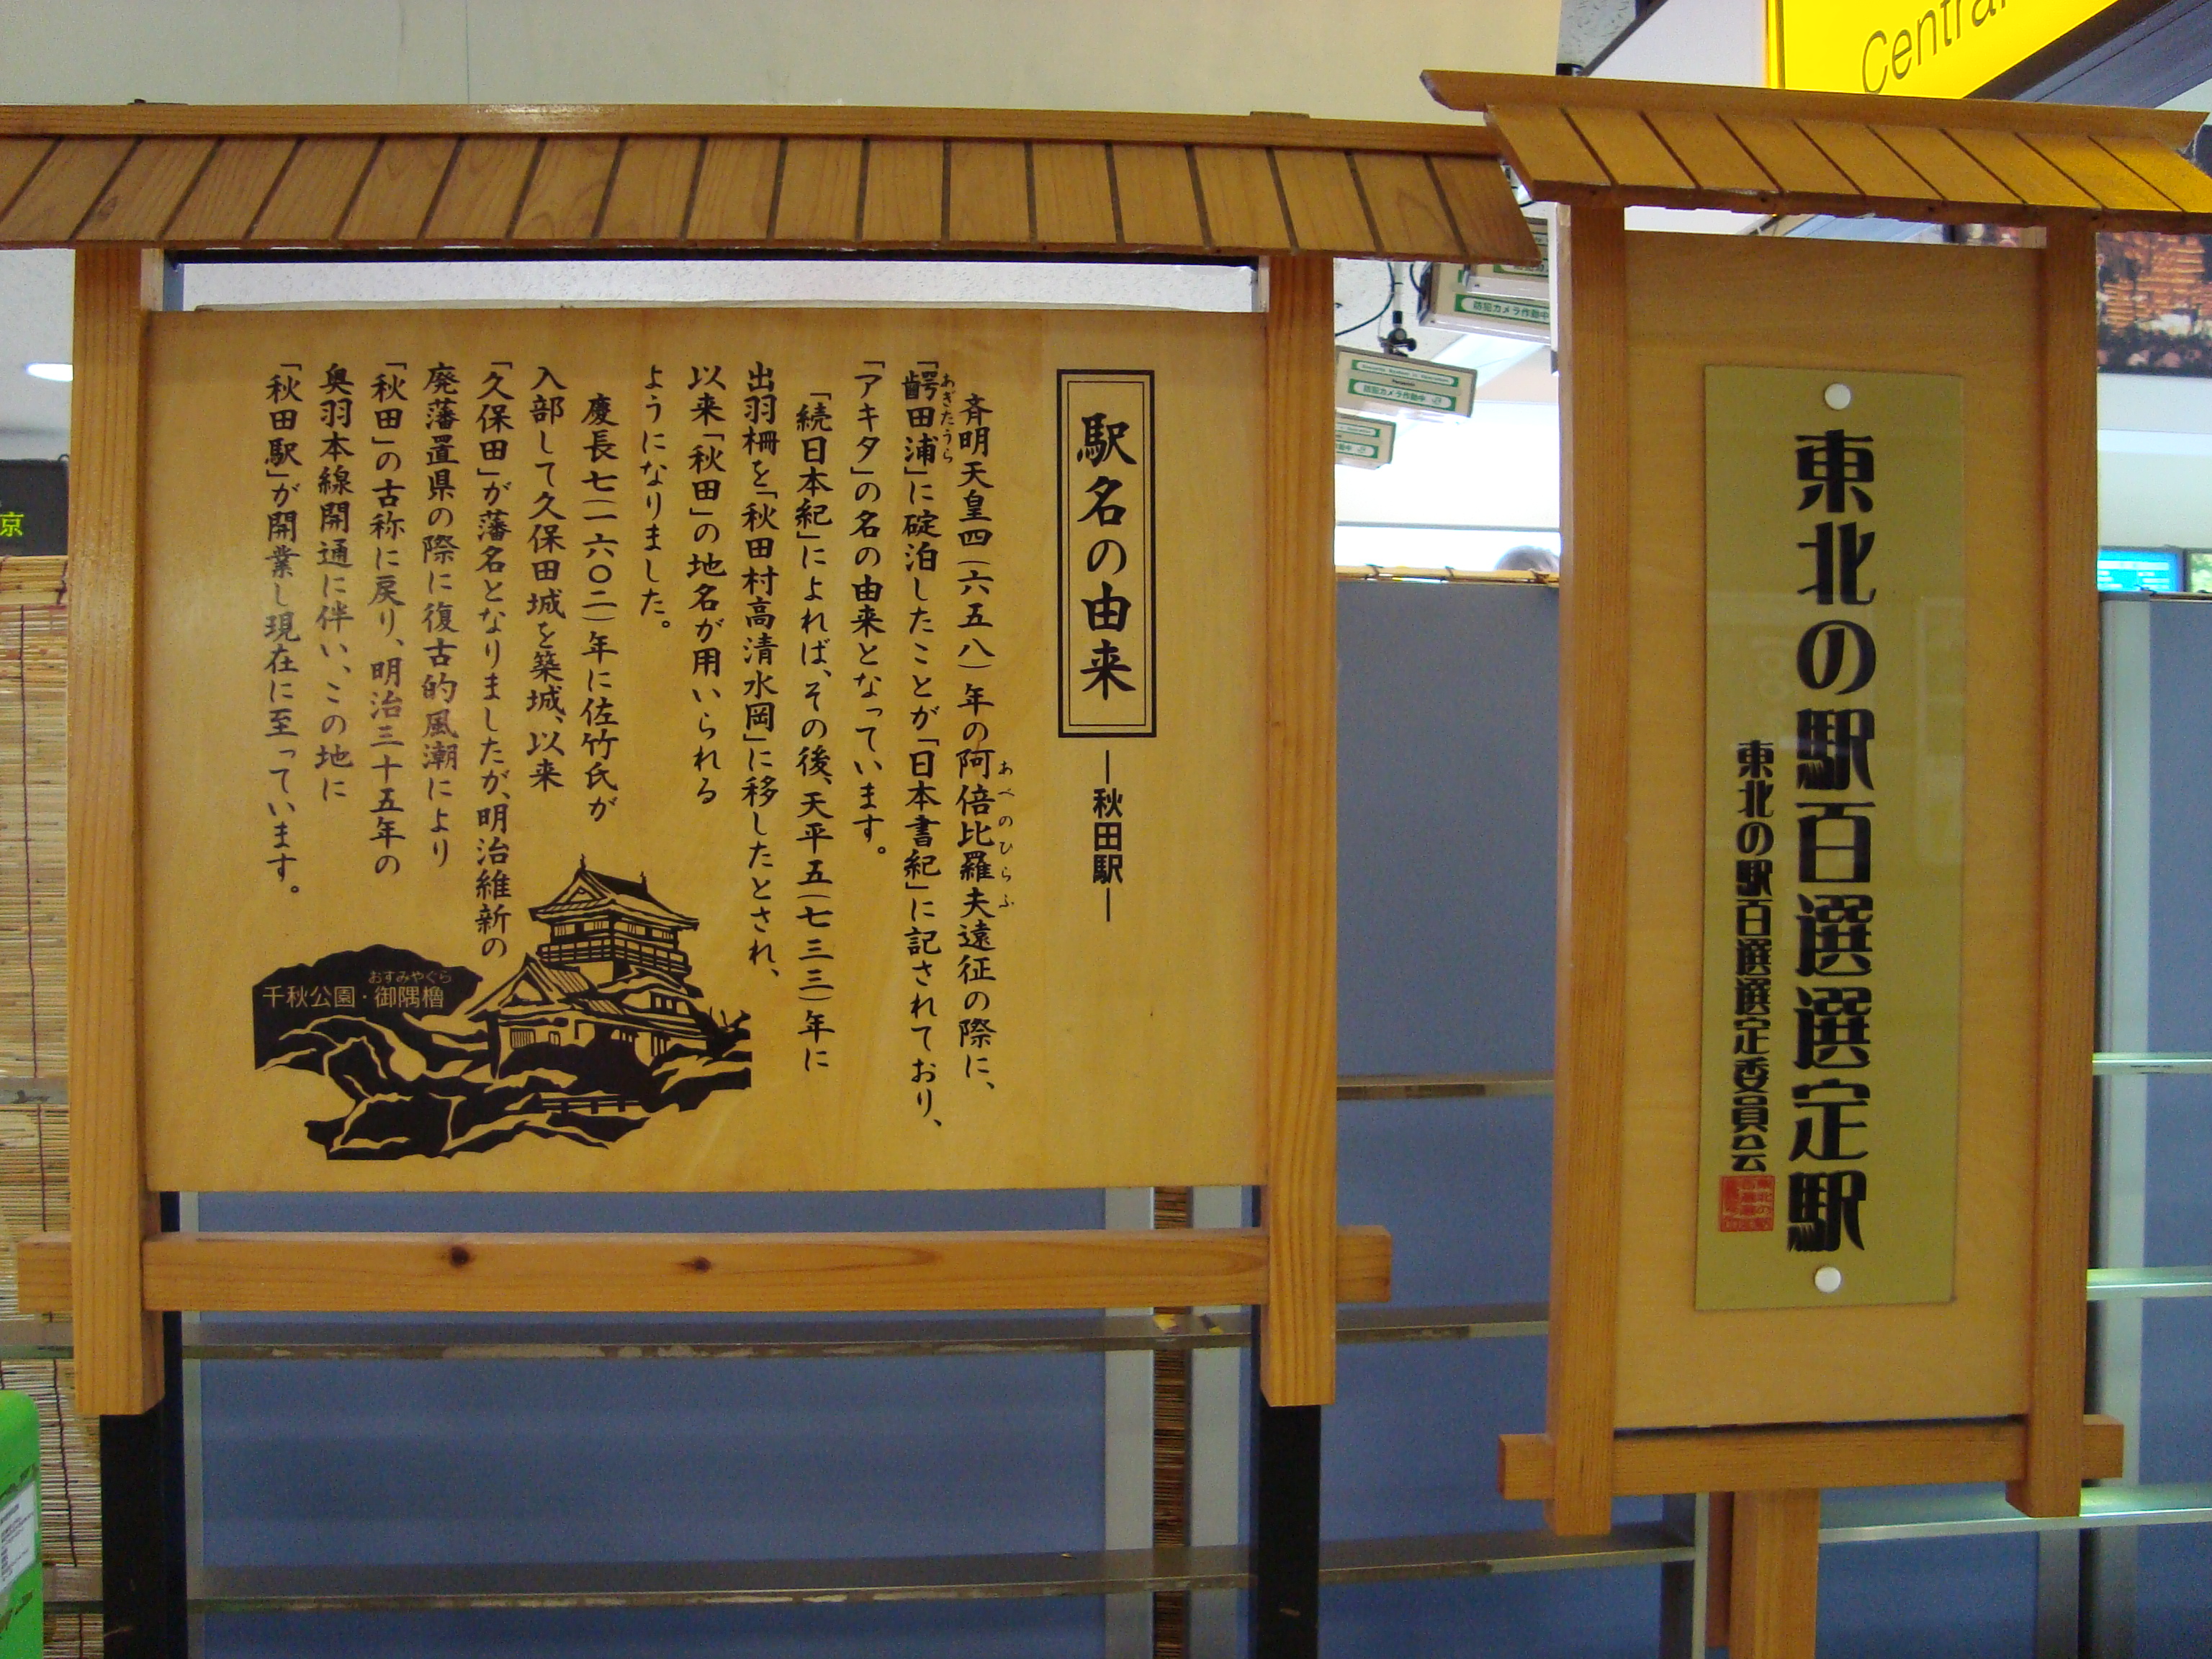 Centra
東北の駅百選選定駅
東北の駅百選選定委員会
駅名の由来
―秋田駅―
斉明天皇四(六五八)年の阿倍比羅夫遠征の際に、
あべのひらふ
「齶田浦」に碇泊したことが「日本書紀」に記されており、
あぎたうら
「アキタ」の名の由来となっています。
「続日本紀」によれば、その後、天平五(七三三)年に
出羽柵を「秋田村高清水岡」に移したとされ、
以来「秋田」の地名が用いられる
ようになりました。
慶長七(一六〇二)年に佐竹氏が
入部して久保田城を築城、以来
「久保田」が藩名となりましたが、明治維新の
廃藩置県の際に復古的風潮により
「秋田」の古称に戻り、明治三十五年の
奥羽本線開通に伴い、この地に
「秋田駅」が開業し現在に至っています。
おすみやぐら
千秋公園・御隅櫓
防犯カメラ作動中
防犯カメラ作動中
京